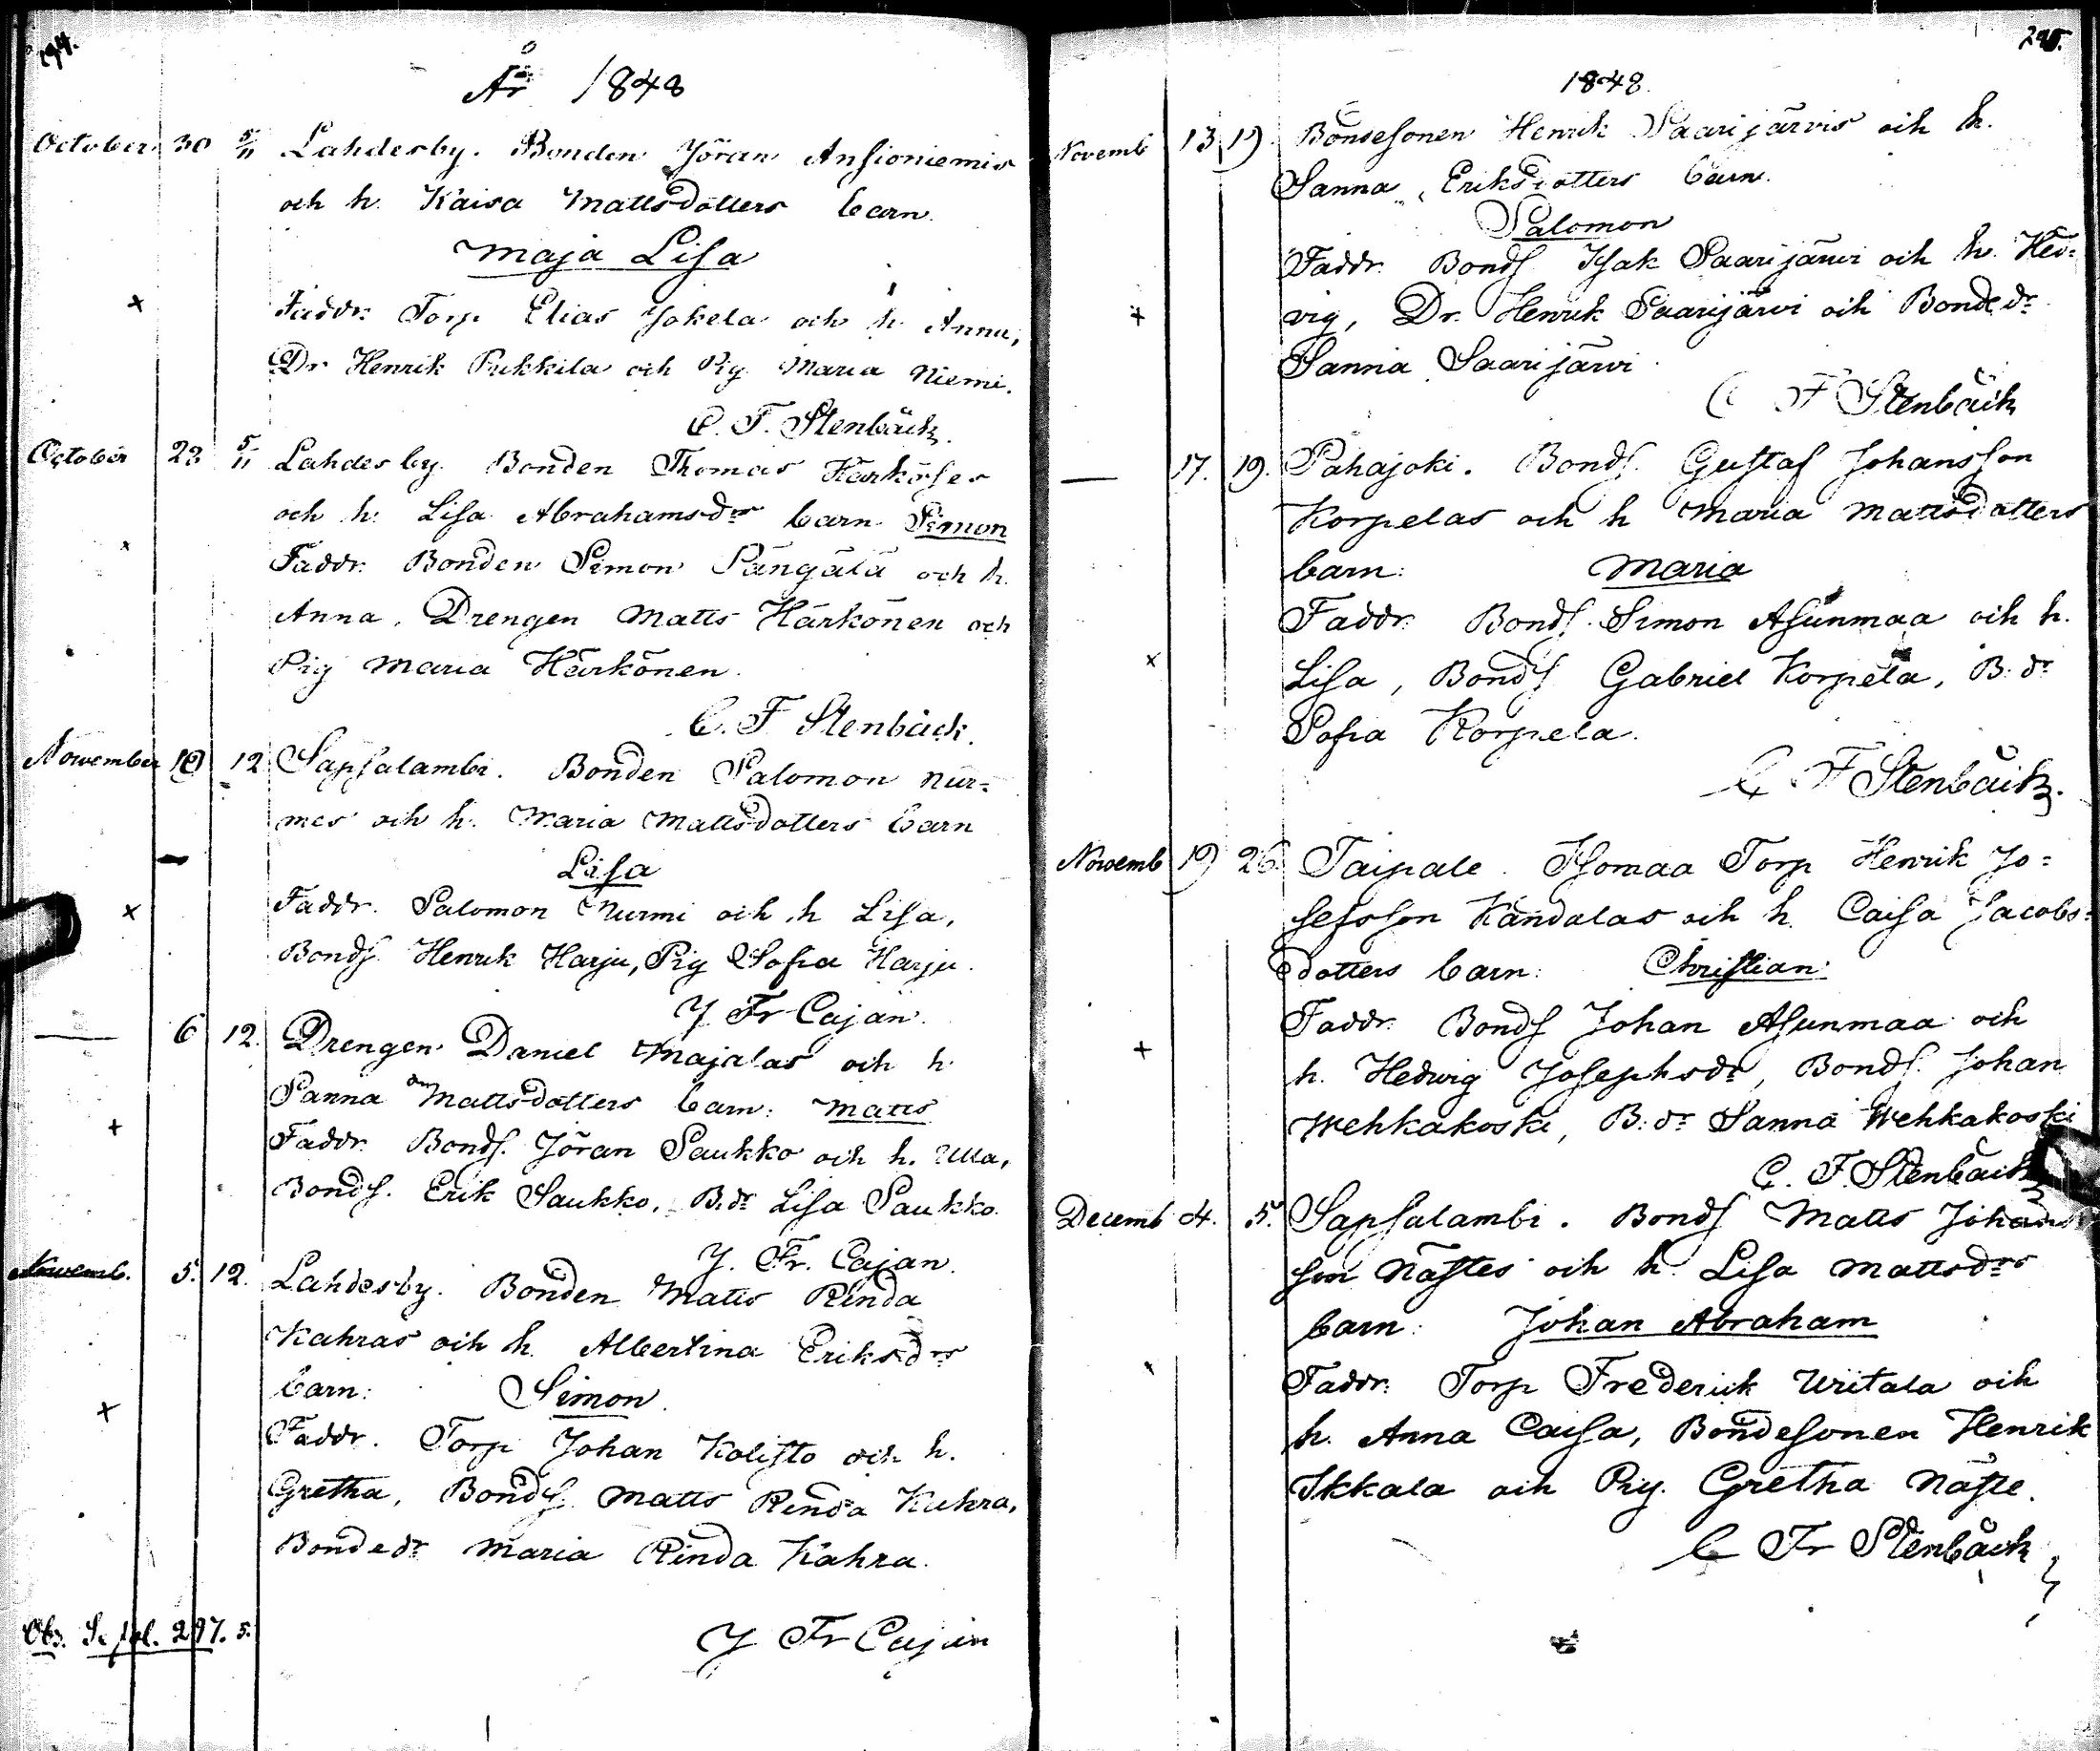 294.
År 1848
October 30 5/11 Lahdesby. Bonden Jöran Ansioniemis
och h. Kaisa Mattsdotters barn.
Maja Lisa
+ Faddr. Torp Elias Jokela och h. Anna,
Dr Henrik Pukkila och Pig Maria Niemi.
C. F. Stenbäck.
October 23 5/11 Lahdesby. Bonden Thomas Härköses
och h. Lisa Abrahamsdrs barn Simon
x Faddr. Bonden Simon Pängälä och h.
Anna, Drengen Matts Härkönen och
Pig Maria Härkönen.
C. F Stenbäck.
November 10 12 Sapsalambi. Bonden Salomon Nur=
mes och h. Maria Mattsdotters barn
Lisa
x Faddr. Salomon Nurmi och h Lisa,
Bonds. Henrik Harju, Pig Sofia Harju.
Y Fr Cajan.
— 6 12. Drengen Daniel Majalas och h
Sanna Mattsdotters barn: Matts
+ Faddr. Bonds. Jöran Saukko och h. Ulla,
Bonds. Erik Saukko, B.dr Lisa Saukko.
Y. Fr. Cajan.
Novemb. 5. 12. Lahdesby. Bonden Matts Rinda
Kahras och h. Albertina Eriksdrs
barn: Simon.
x Faddr. Torp Johan Kolisto och h.
Gretha, Bonds. Matts Rinda Kahra,
Bondedr Maria Rinda Kahra.
Y Fr Cajan
Obs. 297. 5.
295.
1848.
Novemb 13 19. Bondesonen Henrik Saarijärvis och h.
Sanna Eriksdotters barn.
Salomon
Faddr. Bonds Isak Saarijärvi och h. Hed=
+ vig, Dr. Henrik Saarijärvi och Bondedr
Sanna Saarijärvi.
C F Stenbäck
— 17. 19. Pahajoki. Bonds. Gustaf Johansson
Korpelas och h Maria Mattsdotters
barn: Maria
Faddr. Bonds. Simon Asunmaa och h.
x Lisa, Bonds Gabriel Korpela, B.dr
Sofia Korpela.
C F Stenbäck.
Novemb 19 26. Taipale. Isomaa Torp Henrik Jo=
sefsson Kändälas och h. Caisa Jacobs=
dotters barn: Christian
Faddr. Bonds Johan Asunmaa och
+ h. Hedvig Josephsdr, Bonds. Johan
Wehkakoski, B.dr Sanna Wehkakoski
C. F. Stenbäck
Decemb 4. 5. Sapsalambi. Bonds Matts Johans
son Nästes och h. Lisa Mattsdrs
barn: Johan Abraham
Faddr. Torp Frederick Uitala och
h. Anna Caisa, Bondesonen Henrik
Ikkala och Pig. Gretha Näste.
C Fr Stenbäck